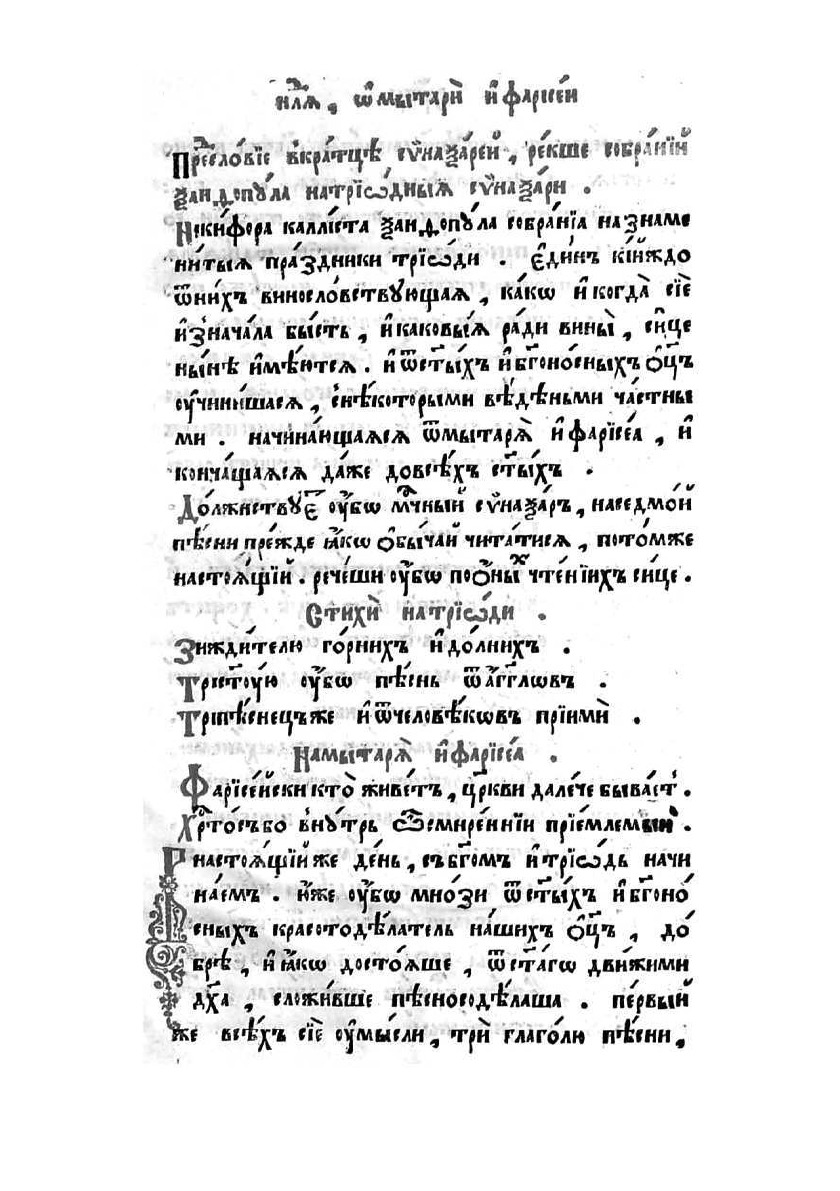 нлⷣѧ, ѡ҆мытарѝ и҆фарїсе́и
Пред̾сло́вїе вкра́тцѣ сѷнаѯаре́й, ре́кше собра́нїй
Ѯанѳопꙋ́ла натрїѡ́дныѧ сѷнаѯари̑ .
Ники́фора каллі́ста ѯанѳопꙋ́ла собра́нїѧ на знаме
ни́тыѧ пра́здники трїѡ́ди . є҆ди́нъ кі́йждо
ѿни́хъ винословствꙋ́ющаѧ, ка́кѡ и҆когда̀ сїѐ
и҆знача́ла бы́сть, и҆каковы́ѧ ра́ди вины̀, си́це
ны́нѣ и҆мѣ́ютсѧ . и҆ѿст҃ы́хъ и҆бг҃оно́сныхъ ѻ҆ц҃ъ
оу҆чини́шасѧ, снѣ́которыми вѣ́дѣньми ча́стны
ми . начина́ющаѧсѧ ѿмытарѧ̀ и҆фарїсе́а, и҆
конча́щаѧсѧ да́же довсѣ́хъ ст҃ы́хъ .
До́лжнствꙋеⷮ оу҆́бѡ мⷭ҇чный сѷнаѯа́ръ, наседмо́й
пѣ́сни пре́жде ꙗ҆́кѡ ѻ҆бы́чай чита́тисѧ, пото́мже
настоѧ́щїй . рече́ши оу҆́бѡ поѻ҆́ныⷯ чте́нїихъ си́це .
Стихѝ натрїѡ́ди .
Зижди́телю го́рнихъ и҆до́лнихъ .
Трист҃ꙋ́ю оу҆́бѡ пѣ́снь ѿа҆́гг҃лѡвъ .
Трипѣ́снецъже и҆ѿчеловѣ́кѡвъ прїимѝ .
Намытарѧ̀ и҆фарїсе́а .
Фарїсе́йски кто̀ живе́тъ, цр҃кви дале́че быва́етъ .
Хрⷭ҇то́събо вну́трь ѿсмире́ннїи прїе́млемый .
Внастоѧ́щїйже де́нь, събг҃омъ и҆трїѡ́дь начи
на́емъ . ю҆́же оу҆́бѡ мно́зи ѿст҃ы́хъ и҆бг҃оно́
сныхъ красотодѣ́латель на́шихъ ѻ҆ц҃ъ, до́
брѣ, и҆ꙗ҆́кѡ досто́ѧше, ѿст҃а́гѡ дви́жими
дх҃а, сложи́вше пѣ́сносодѣ́лаша . пе́рвый
же всѣ́хъ сїѐ оу҆мы́сли, трѝ глаго́лю пѣ́сни,